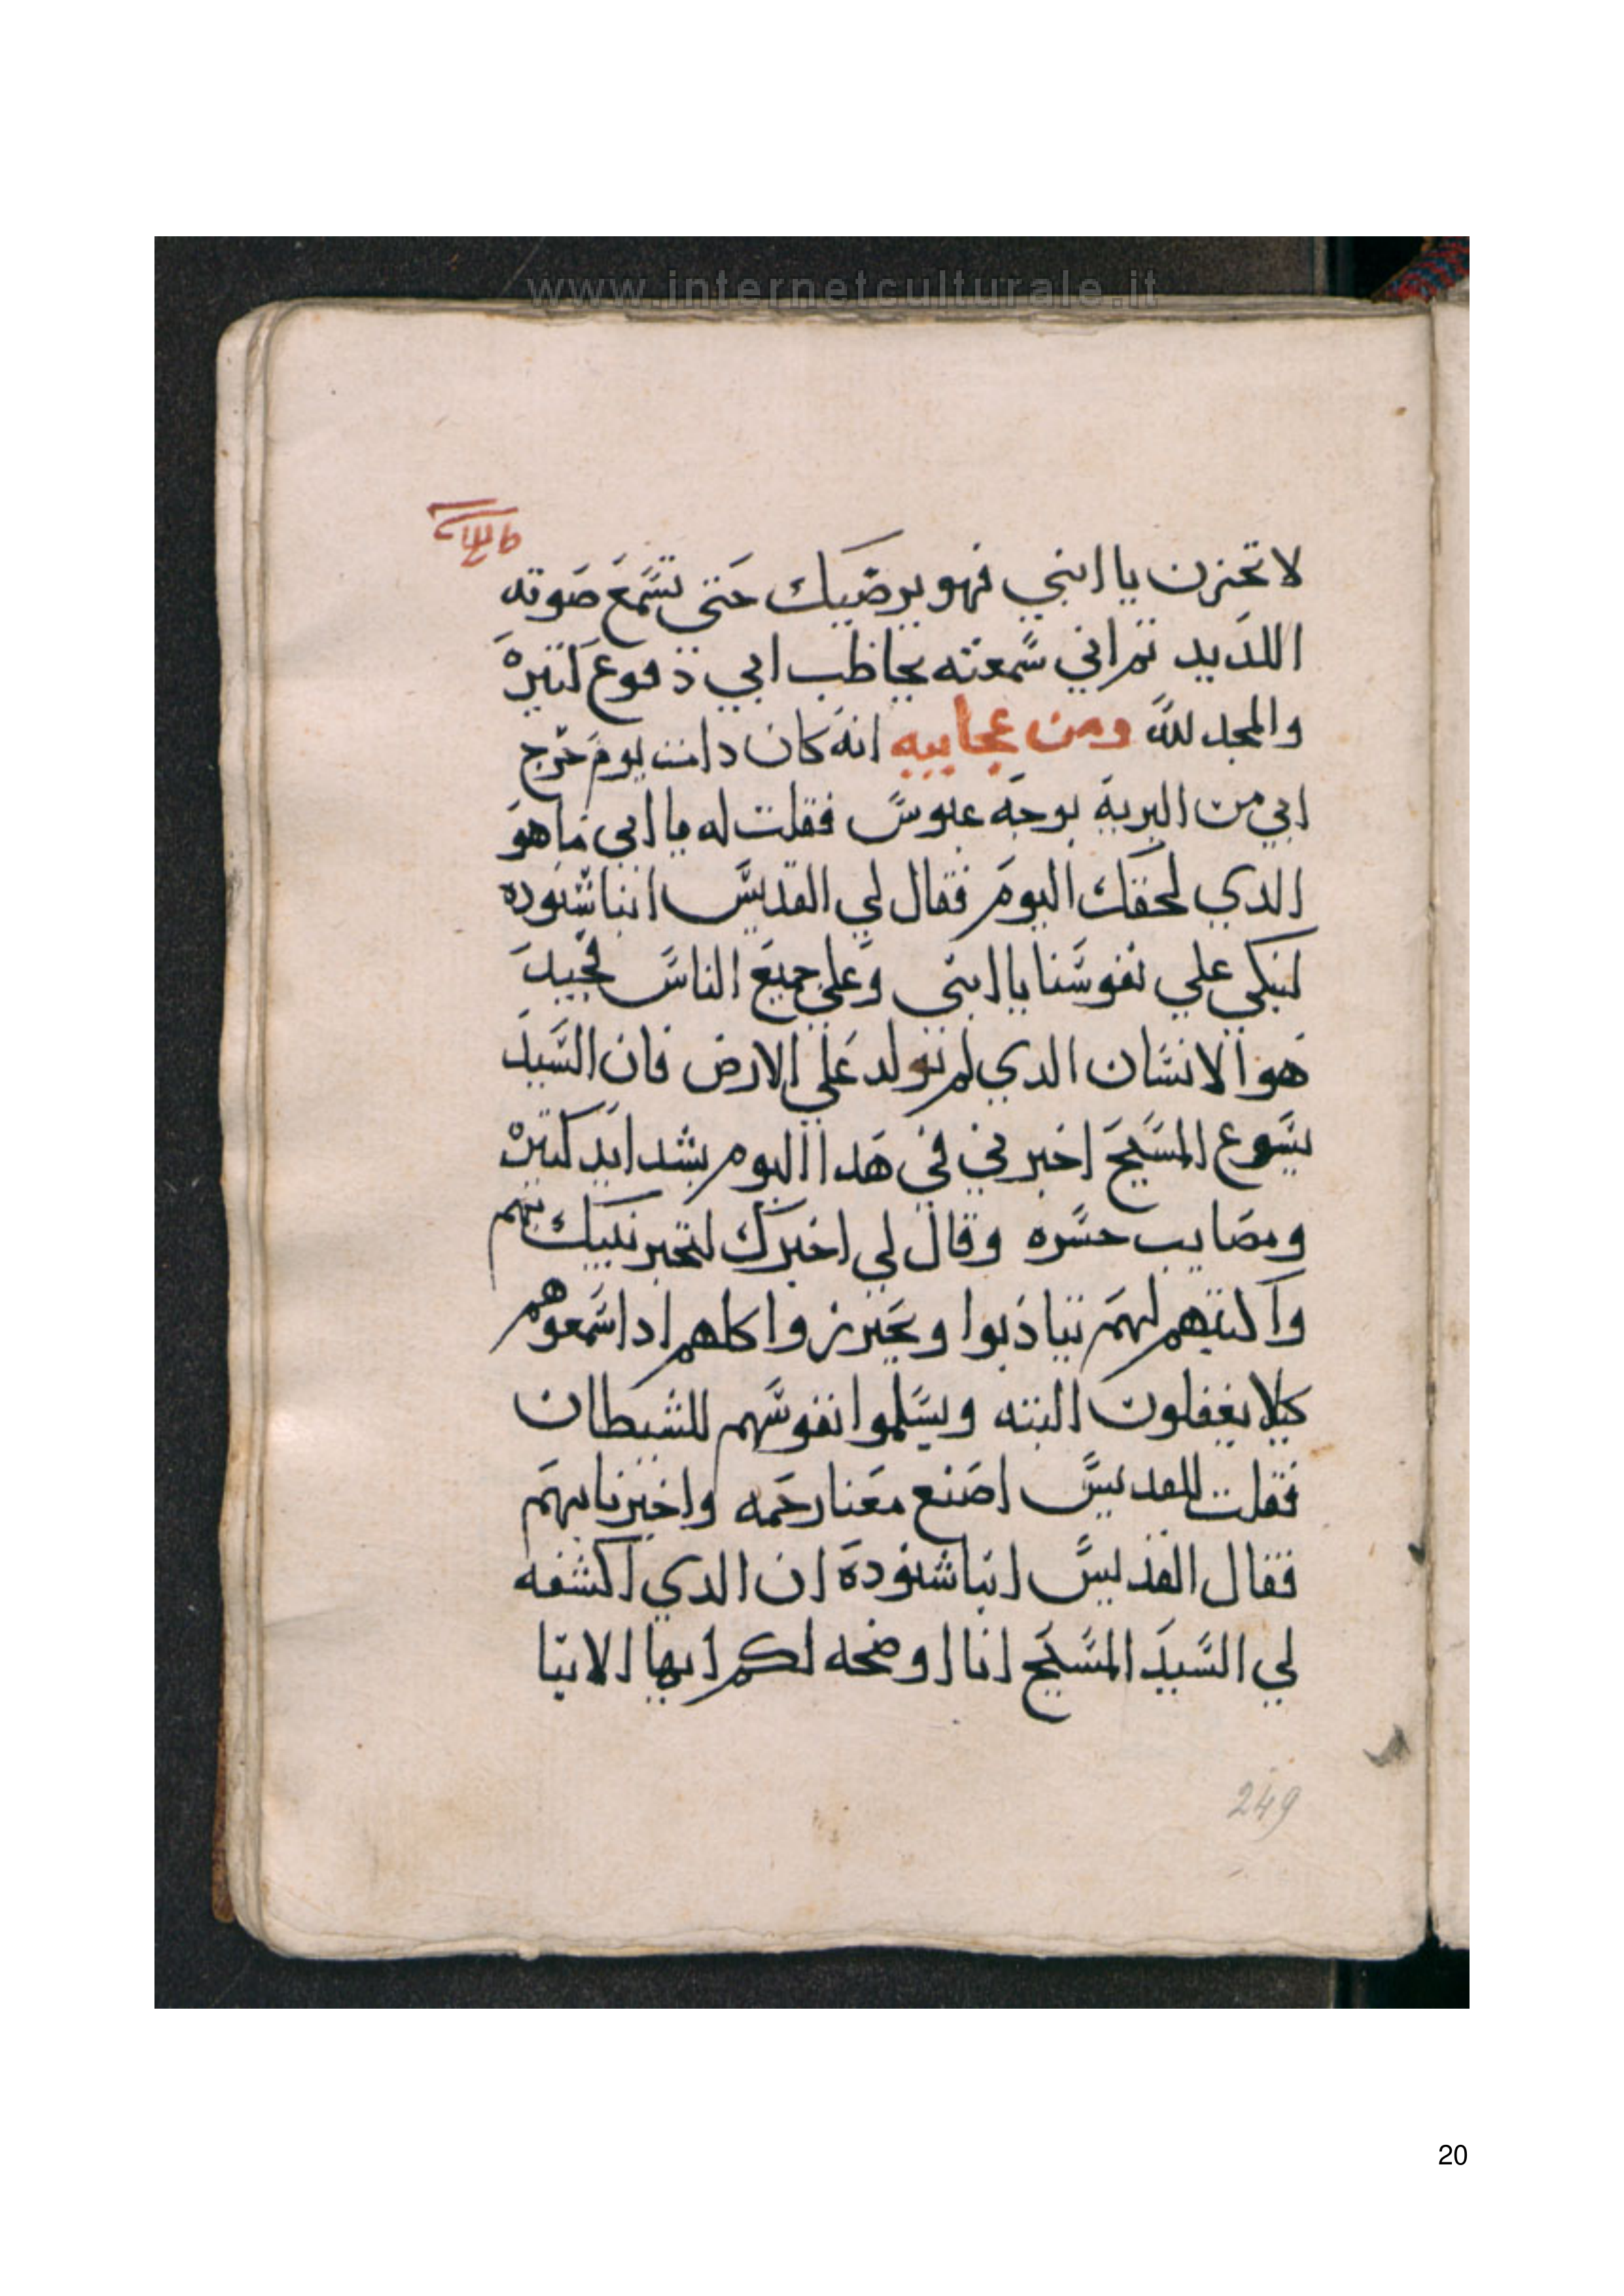 www.internetculturale.it
لا تحزن يا ابني فهو يرضيك حتى تسمع صوته
اللديد تم اني سمعته يخاطب ابي دفوع كتيرة
والمجد لله ومن عجاييه انه كان دات يوم خرج
ابي من البرية بوجه عبوس فقلت له يا ابي ما هو
الدي لحقك اليوم فقال لي القديس انبا شنوده
لنبكي علي نفوسنا يا ابني وعلي جميع الناس فجيد
هو الانسان الدي لم تولد علي الارض فان السيد
يسوع المسيح اخبرني في هدا اليوم بشدايد كتيرة
ومصايب حسره وقال لي اخبرك لتخبر بنيك بهم
واكتبهم لهم يتادبوا ويحترزوا كلهم ادا سمعوهم
كيلا يغفلون البته ويسلموا نفوسهم للشيطان
فقلت للقديس اصنع معنا رحمه واخبرنا بهم
فقال القديس انبا شنودة ان الدي اكشفه
لي السيد المسيح انا اوضحه لكم ايها الابنا
249
20